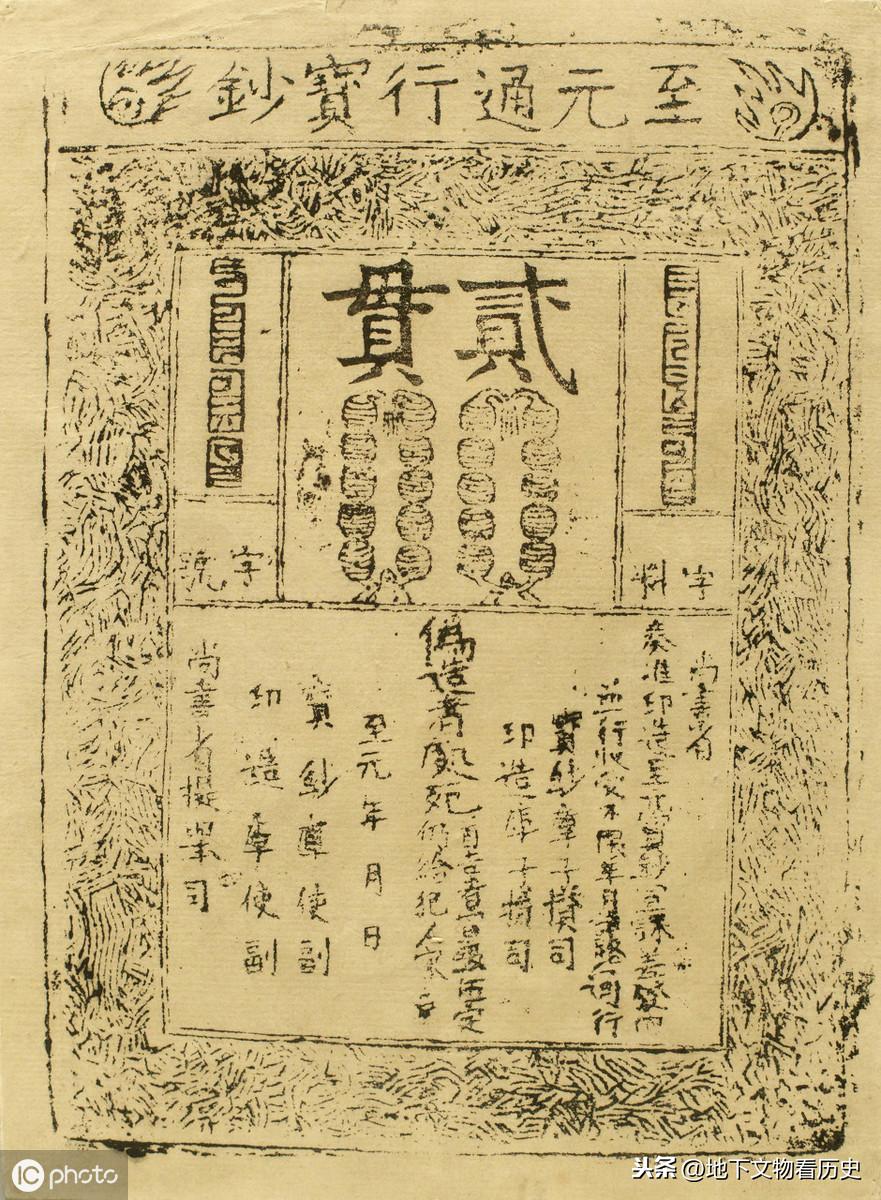 至元通行寶鈔
貳貫
字料
字號
尚書省
奏准印造至元寶鈔宣課差發內
並行收受不限年月諸路通行
寶鈔庫子攢司
印造庫子攢司
偽造者處死
首告者賞銀伍定
仍給犯人家產
至元 年 月 日
寶鈔庫使副
印造庫使副
尚書省提舉司
iC photo
头条 @地下文物看历史